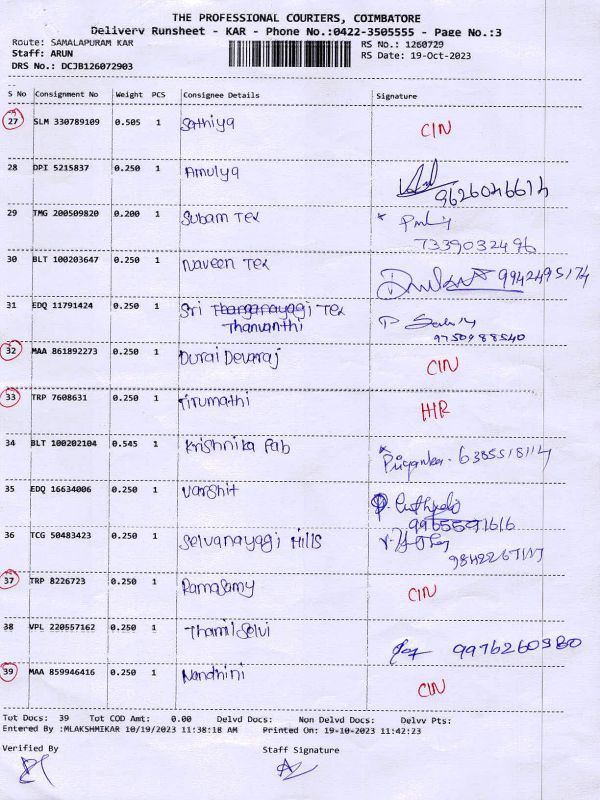 THE PROFESSIONAL COURIERS, COIMBATORE
Delivery Runsheet - KAR - Phone No.:0422-3505555 - Page No.:3
Route: SAMALAPURAM KAR RS No.: 1260729
Staff: ARUN RS Date: 19-Oct-2023
DRS No.: DCJB126072903
S No Consignment No Weight PCS Consignee Details Signature
27 SLM 330789109 0.505 1 Sathiya CIN
28 DPI 5215837 0.250 1 Amulya
9626046614
29 TMG 200509820 0.200 1 Subam Tex
7339032496
30 BLT 100203647 0.250 1 Naveen Tex 9942495174
31 EDQ 11791424 0.250 1 Sri Thanganayagi Tex
Thanvanthi 9750988540
32 MAA 861892273 0.250 1 Durai Devaraj CIN
33 TRP 7608631 0.250 1 Tirumathi
34 BLT 100202104 0.545 1 Krishnika Fab Priyanka. 6385518114
35 EDQ 16634006 0.250 1 Varshit
36 TCG 50483423 0.250 1 Selvanayagi Mills
37 TRP 8226723 0.250 1 Ramasamy CIN
38 VPL 220557162 0.250 1 Thamil Selvi 9976260980
39 MAA 859946416 0.250 1 Nandhini CIN
Tot Docs: 39 Tot COD Amt: 0.00 Delvd Docs: Non Delvd Docs: Delvv Pts:
Entered By :MLAKSHMIKAR 10/19/2023 11:38:18 AM Printed On: 19-10-2023 11:42:23
Verified By Staff Signature